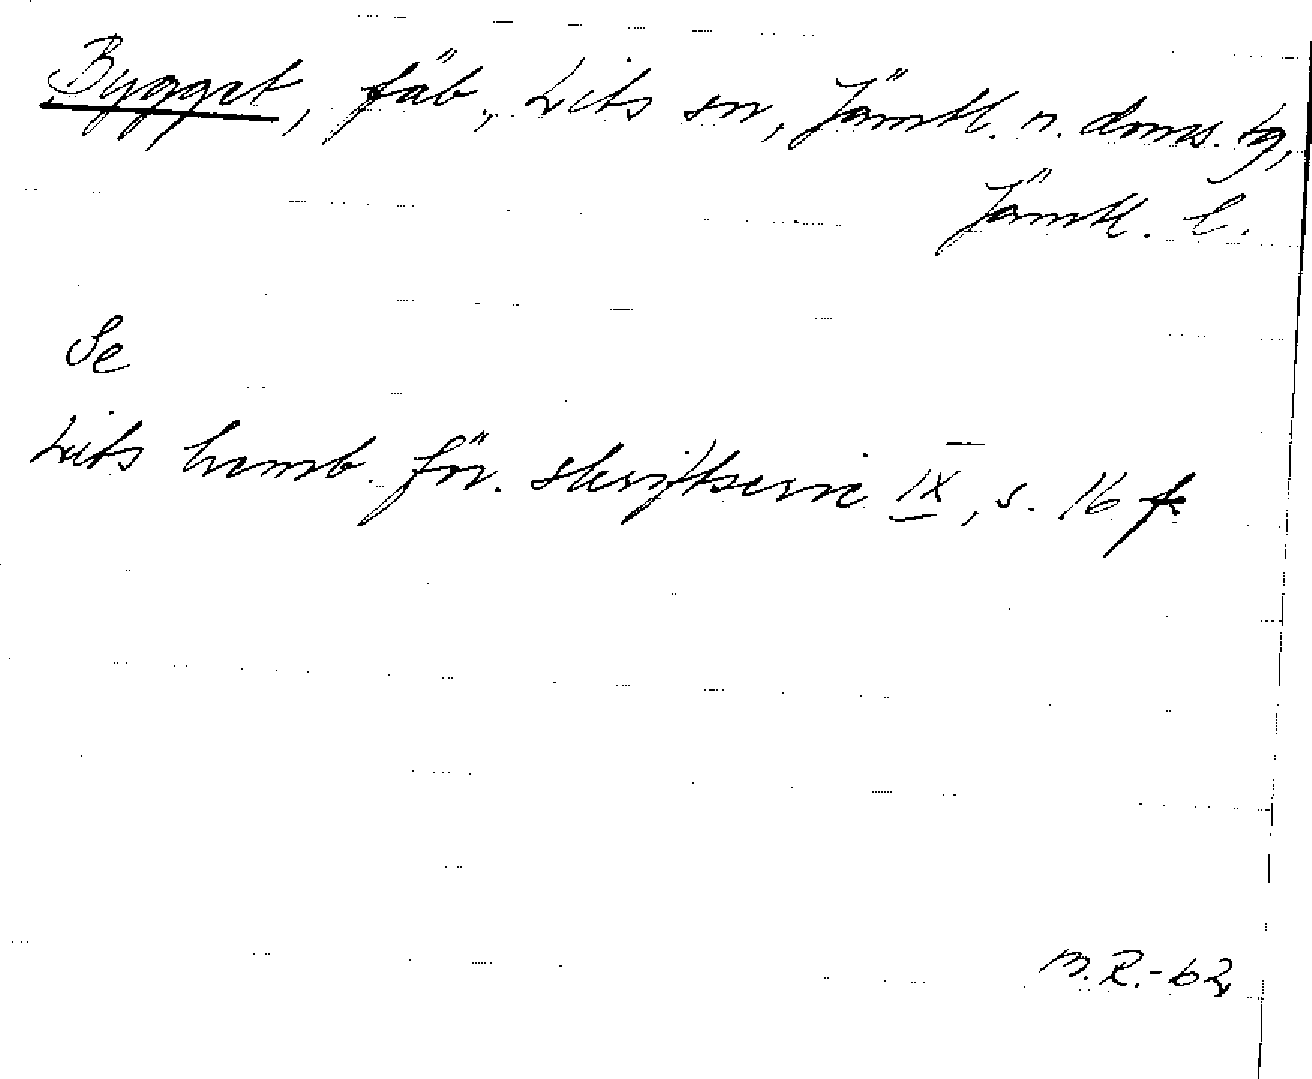 Bygget, fäb., Lits sn, Jämtl. n. doms. tg,
Jämtl. l.
Se
Lits hemb. för. skriftserie IX, s. 16 f.
M.R.-62